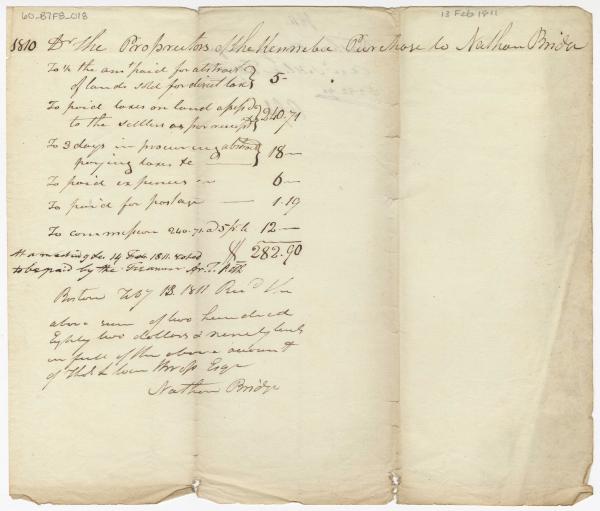 60-B7F8-018
13 Feb 1811
1810 Dr the Proprietors of the Kennebec Purchase to Nathan Bridge
To ½ the amt paid for abstract
of lands sold for direct tax 5-
To paid taxes on land
to the settlers as per receipt 240.71
To 3 days in procuring abstract
paying taxes &c 18-
To paid expences 6-
To paid for postage 1.19
To commission 240.71 a 5 pr Ct 12-
$ 282.90
At a meeting 14 Feb. 1811. voted
to be paid by the Treasurer
Boston Feby 13. 1811 Recd the
above sum of two hundred
Eighty two dollars & ninety cents
in full of the above account
of Esqr
Nathan Bridge